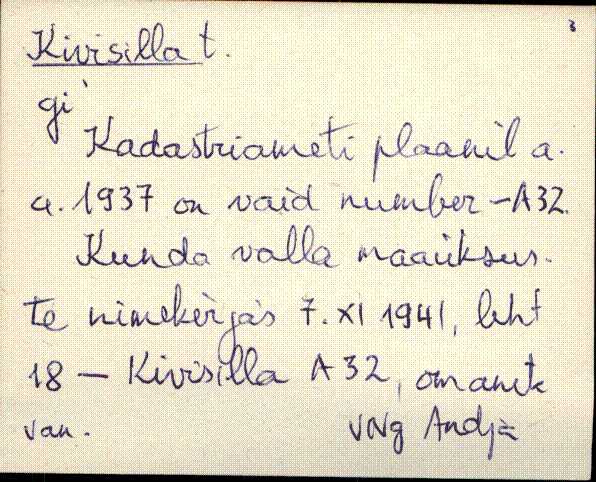 3
Kivisilla t.
gi
Kadastriameti plaanil a.
a. 1937 on vaid number – A 32.
Kunda valla maaüksus-
te nimekirjas 7. XI 1941, leht
18 – Kivisilla A 32, omanik
van. VNg Andja